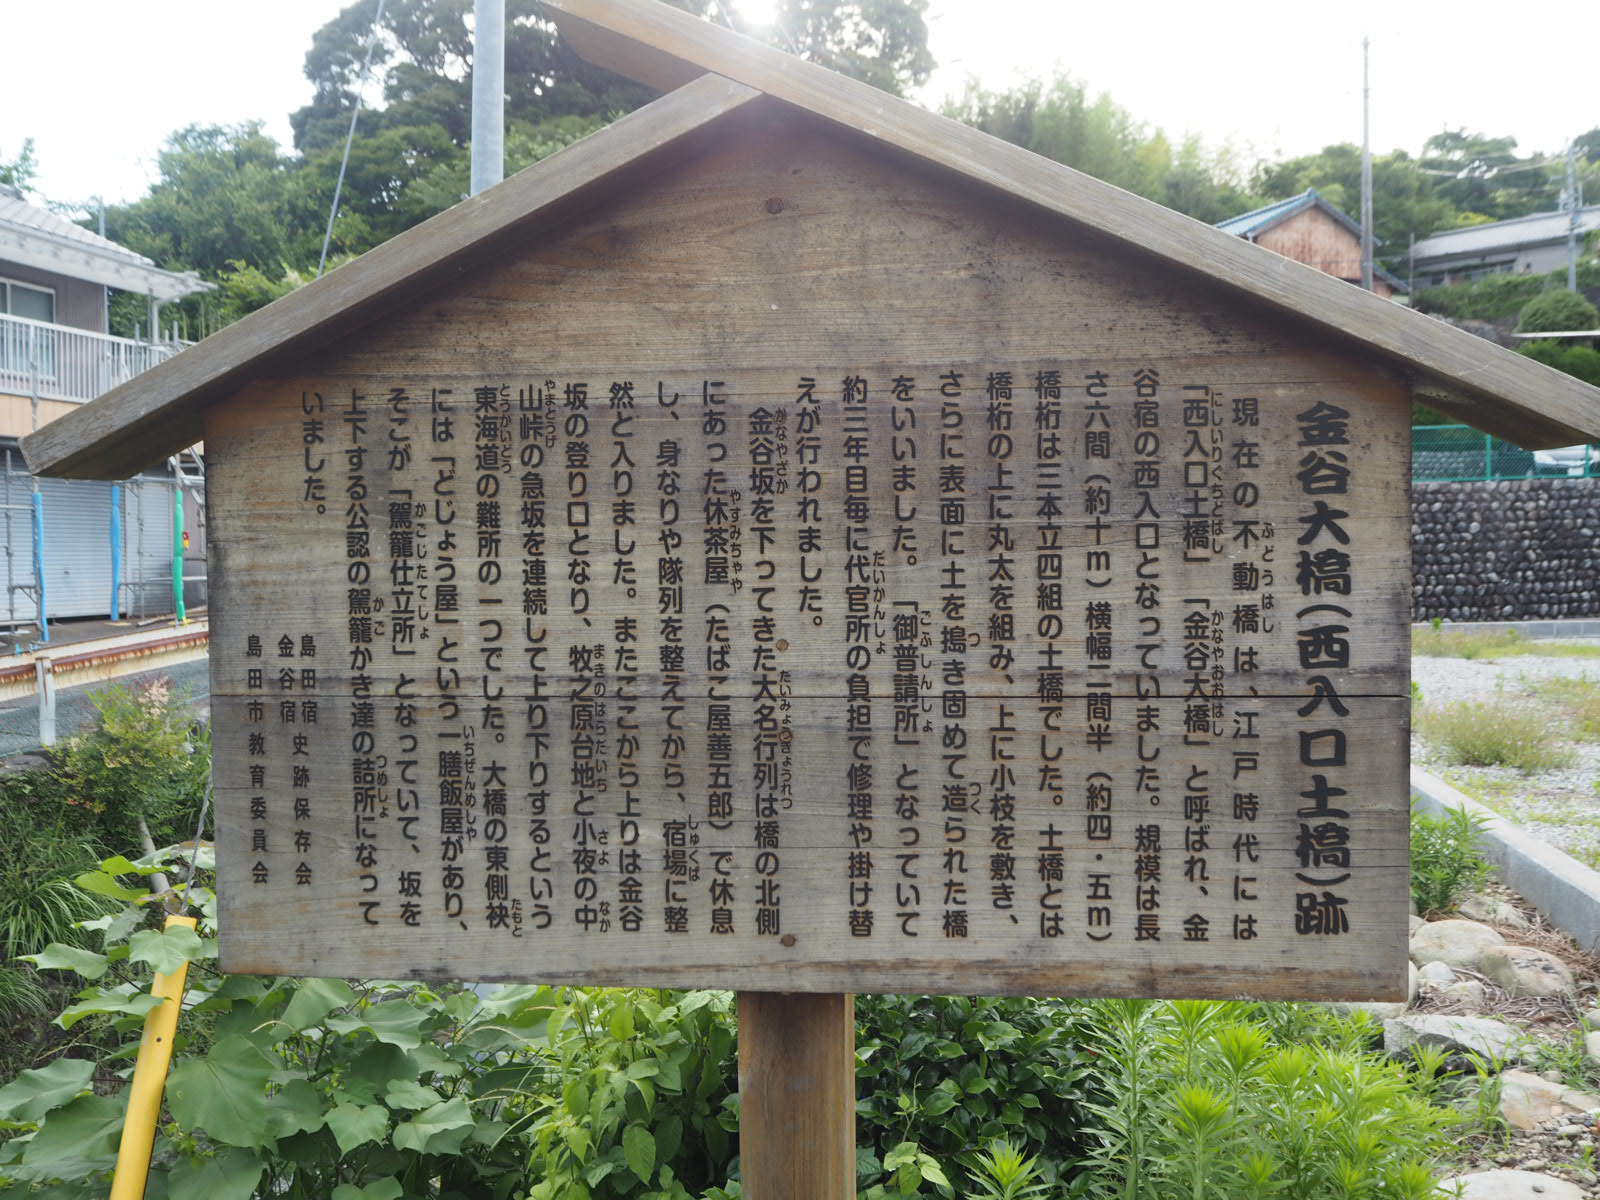 金谷大橋（西入口土橋）跡
現在の不動橋は、江戸時代には
「西入口土橋」「金谷大橋」と呼ばれ、金
谷宿の西入口となっていました。規模は長
さ六間（約十ｍ）横幅二間半（約四・五ｍ）
橋桁は三本立四組の土橋でした。土橋とは
橋桁の上に丸太を組み、上に小枝を敷き、
さらに表面に土を搗き固めて造られた橋
をいいました。「御普請所」となっていて
約三年目毎に代官所の負担で修理や掛け替
えが行われました。
金谷坂を下ってきた大名行列は橋の北側
にあった休茶屋（たばこ屋善五郎）で休息
し、身なりや隊列を整えてから、宿場に整
然と入りました。またここから上りは金谷
坂の登り口となり、牧之原台地と小夜の中
山峠の急坂を連続して上り下りするという
東海道の難所の一つでした。大橋の東側袂
には「どじょう屋」という一膳飯屋があり、
そこが「駕籠仕立所」となっていて、坂を
上下する公認の駕籠かき達の詰所になって
いました。
島田宿 史跡保存会
金谷宿
島田市教育委員会